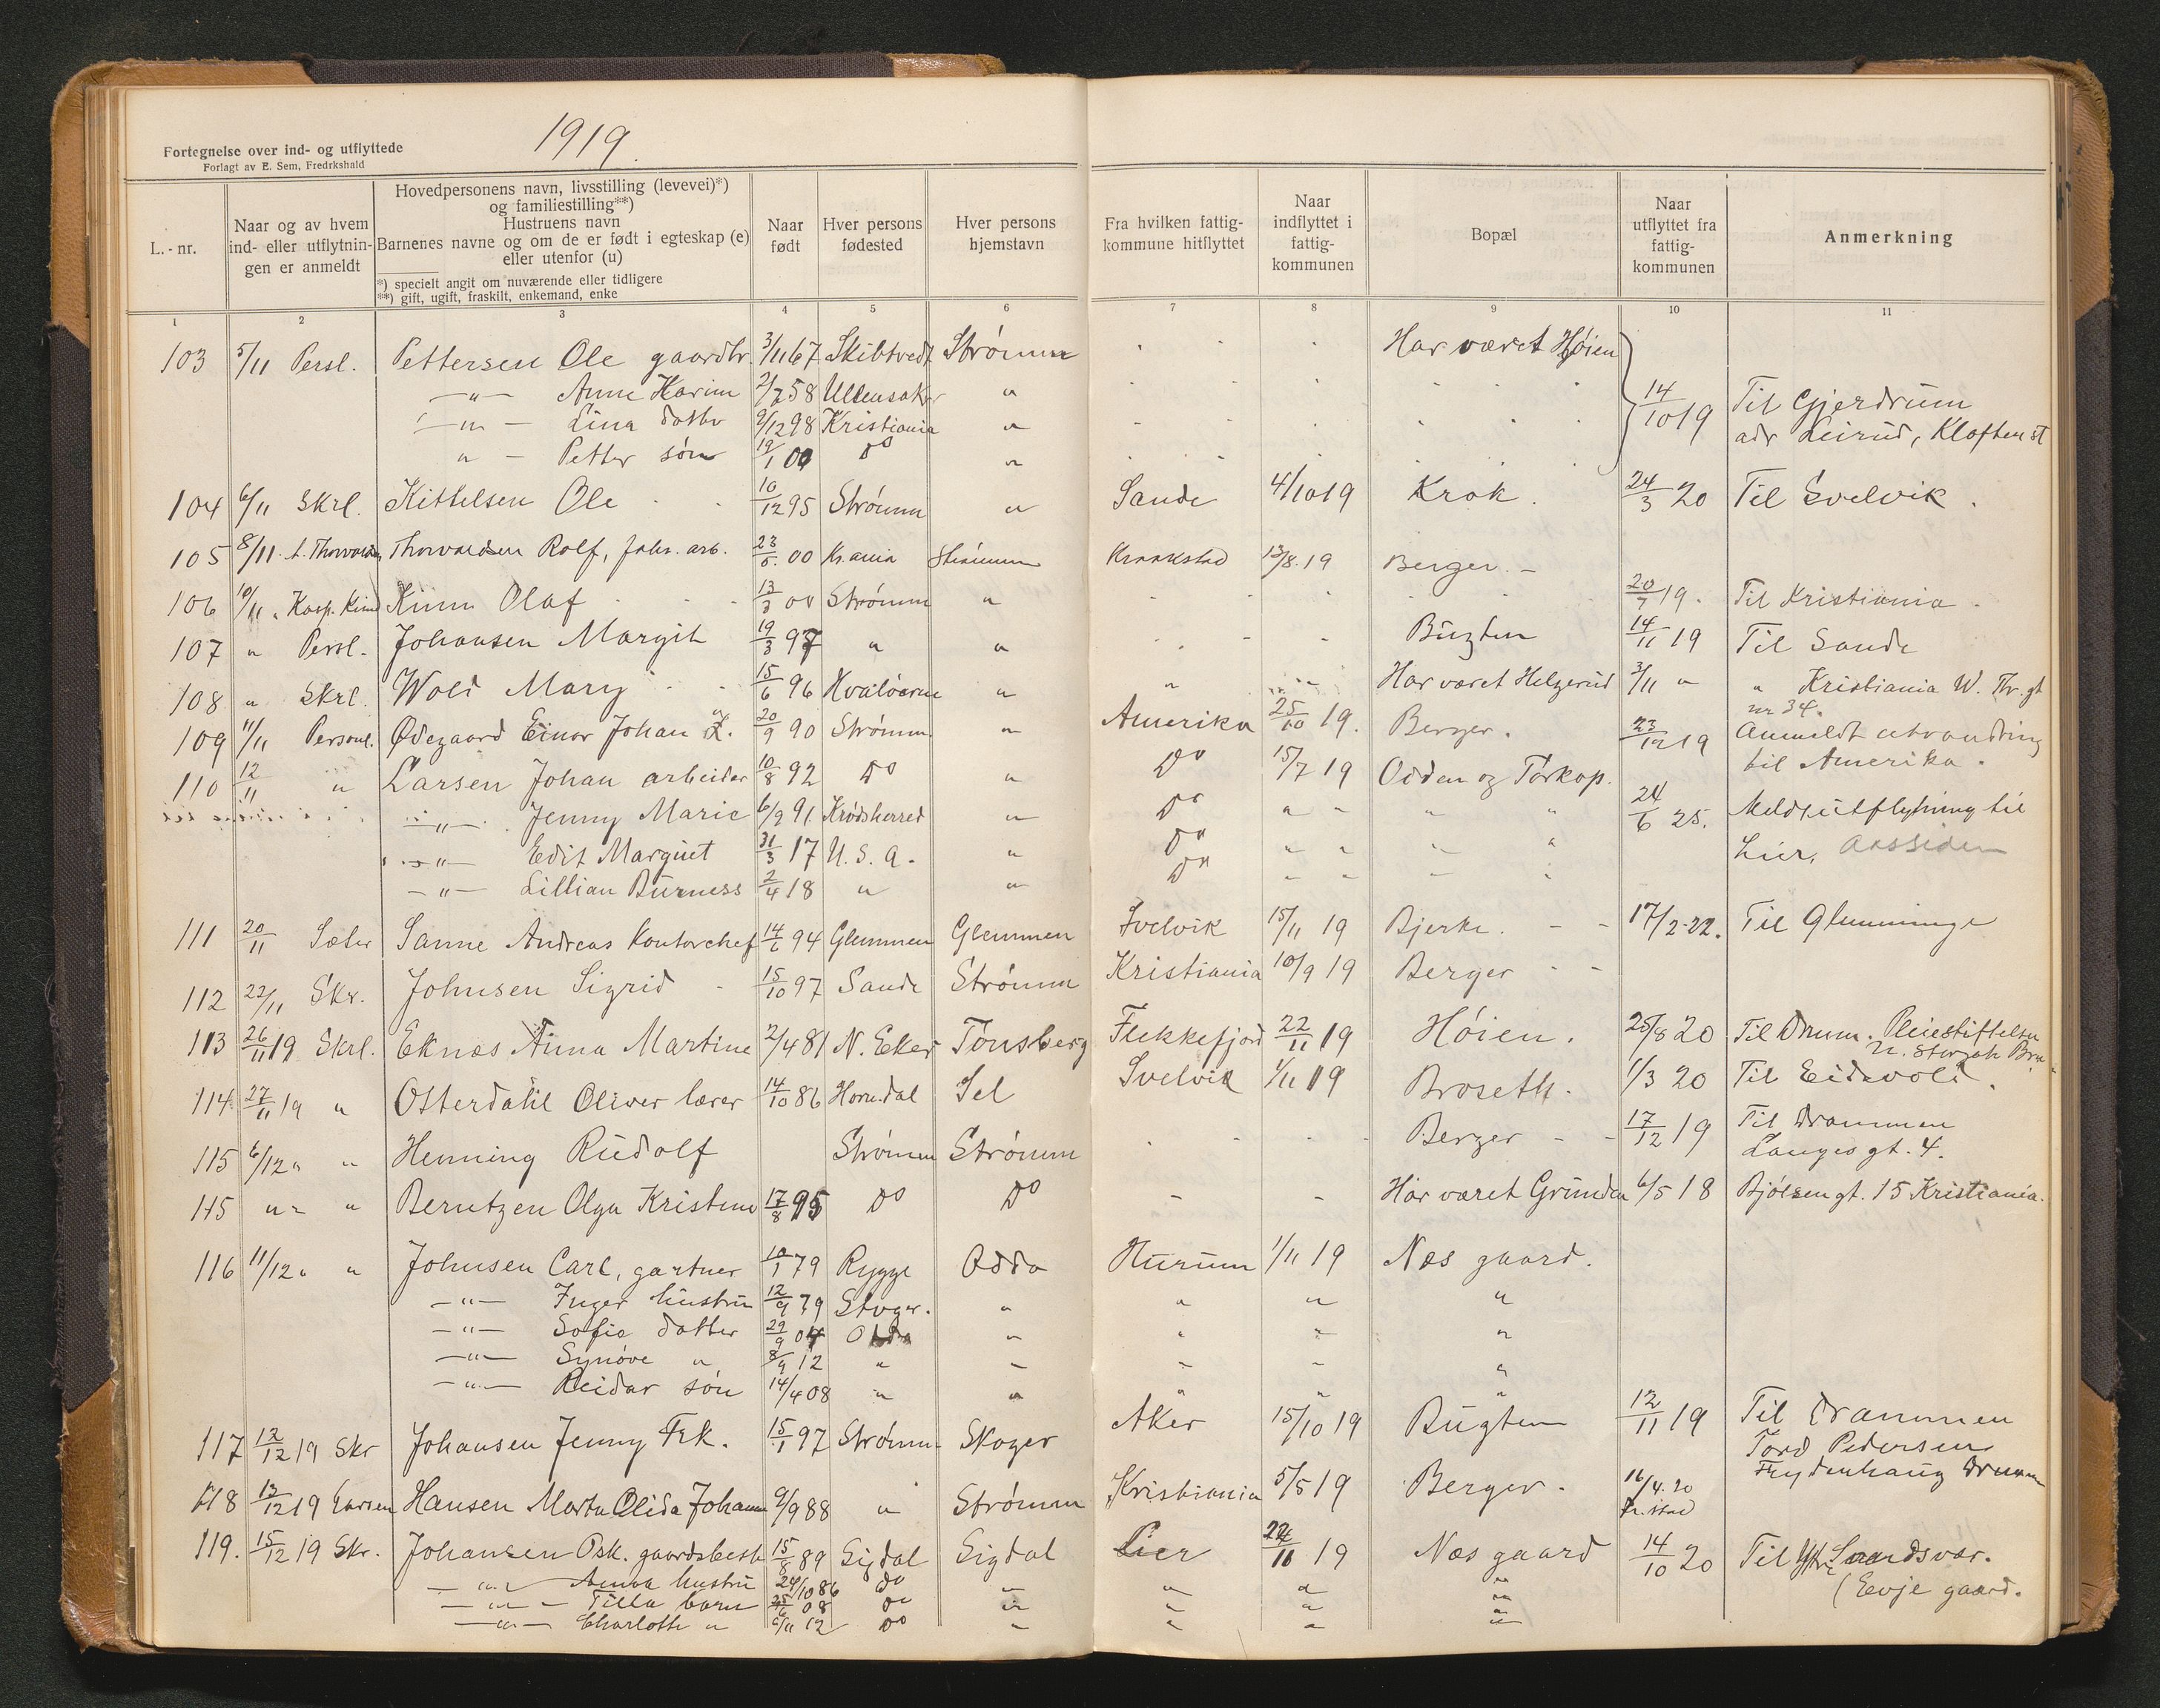 1919.
Fortegnelse over ind- og utflyttede
Forlagt av E. Sem, Fredrkshald
L.-nr.
Naar og av hvem ind- eller utflytningen er anmeldt
Hovedpersonens navn, livsstilling (levevei)*)
og familiestilling**)
Hustruens navn
Barnenes navne og om de er født i egteskap (e)
eller utenfor (u)
*) specielt angit om nuværende eller tidligere
**) gift, ugift, fraskilt, enkemand, enke
Naar født
Hver persons fødested
Hver persons hjemstavn
Fra hvilken fattigkommune hitflyttet
Naar indflyttet i fattigkommunen
Bopæl
Naar utflyttet fra fattigkommunen
Anmerkning
1 2 3 4 5 6 7 8 9 10 11
103 5/11 Persl. Pettersen Ole gaardbr. 3/11 67 Skibtvedt Strømm Har været Høien
—"— Anne Karine 2/7 58 Ullensaker " 14/10 19 Til Gjerdrum
—"— Lina datter 9/12 98 Kristiania " adr Leirud, Kløften st
" — Petter søn 19/1 00 Do "
104 6/11 Skrl. Kittelsen Ole 10/12 95 Strømm " Sande 4/10 19 Krok. 24/3 20 Til Svelvik.
105 8/11 Thorvaldsen Rolf, fabr. arb. 23/5 00 Kr.ania Strømm Kraakstad 13/8 19 Berger. –
106 10/11 Kasp. Kinn Kinn Olaf 13/3 00 Strømm " 20/7 19. Til Kristiania.
107 " Persl. Johansen Margit 19/3 97 " " Bugten 14/11 19 Til Sande
108 " Skrl. Wold Mary 15/6 96 Hvaløerne " " Har været Helgerud 3/11 " " Kristiania W. Thr. gt
nr 34.
109 11/11 Personl. Ødegaard Einar Johan 20/9 90 Strømm " Amerika 25/10 19. Berger. 23/12 19 Anmeldt utvandring
til Amerika.
110 12/11 " Larsen Johan arbeider 10/8 92 Do " Do 15/7 19 Odden og Tørkop.
—"— Jenny Marie 6/9 91 Krødsherred " Do " " " 24/6 25. Meldt utflytning til
—"— Edit Marguet 31/3 17 U.S.A. " Do " " " Lier, Aassiden
—"— Lillian Burness 2/4 18 " " Do
111 20/11 Sæter Sanne Andreas Kontorchef 14/6 94 Glemmen Glemmen Svelvik 15/11 19 Bjerke. 17/2-22. Til Glemminge
112 22/11 Skr. Johnsen Sigrid 15/10 97 Sande Strømm Kristiania 10/9 19 Berger
113 26/11 19 Skrl. Eknæs Anna Martine 2/4 81 N. Eker Tønsberg Flekkefjord 22/11 19 Høien. 25/8 20 Til Dramm. Pleiestiftelse
114 27/11 19 " Østerdahl Oliver lærer 14/10 86 Horn.dal Sel Svelvik 1/11 19 Broseth. 1/3 20 Til Eidsvold.
115 6/12 " " Henning Rudolf Strømm Strømm Berger 17/12 19 Til Drammen
Langes gt. 4.
115 " " " Berntzen Olga Kristine 17/8 95 Do Do Har været Grunden 6/5 18 Bjølsen gt. 15 Kristiania.
116 11/12 " " Johnsen Carl, gartner 10/1 79 Rygge Odda Hurum 1/11 19 Næs gaard.
—"— Inger hustru 12/9 79 Skoger. " " " "
—"— Sofie datter 29/9 04 Odda " " " "
—"— Synøve " 8/9 12 " " " " "
—"— Reidar søn 14/4 08 " " " " "
117 12/12 19 Skr Johansen Jenny Frk. 15/1 97 Strømm Skoger Aker 15/10 19 Bugten 12/11 19 Til Drammen
Tord Pedersens
Frydenhaug Dramm
118 13/12 19 Larsen Hansen Marta Olida Johanne 9/9 88 " Strømm Kristiania 5/5 19 Berger. 16/4. 20
Fr.stad
119. 15/12 19 Skr. Johansen Osk. gaardsbest. 15/8 89 Sigdal Sigdal Lier Næs gaard 14/10 20 Til Ytre Sandsvær.
—"— Anna hustru 24/10 86 Do " " " " (Eevje gaard.
—"— Tilla barn 08 Do " " " "
—"— Charlotte " 6/11 12 Do " " " "